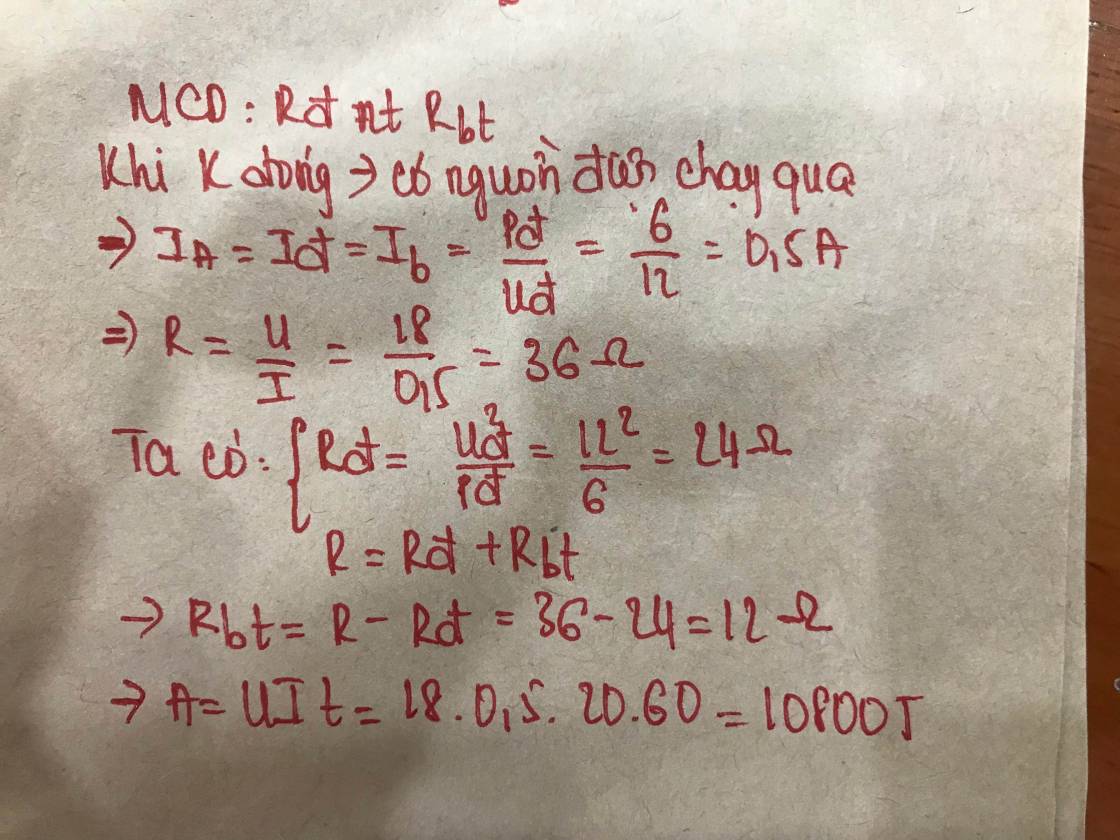 MCD: Rđ nt Rbt
Khi K đóng → có nguồn điện chạy qua
=> IA = Iđ = Ib = Pđ/Uđ = 6/12 = 0,5A
=> R = U/I = 18/0,5 = 36 Ω
Ta có: { Rđ = Uđ²/Pđ = 12²/6 = 24Ω
R = Rđ + Rbt
→ Rbt = R - Rđ = 36 - 24 = 12 Ω
→ A = UIt = 18.0,5.20.60 = 10800J